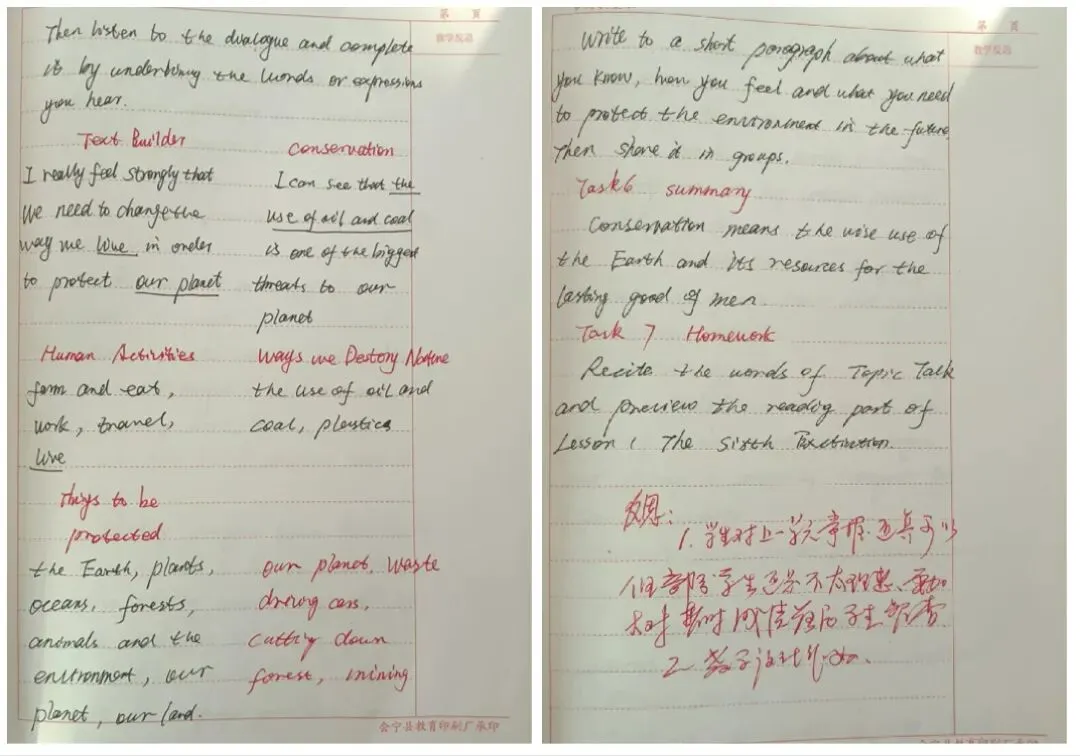 第 页
教学反思
Then listen to the dialogue and complete
it by underlining the words or expressions
you hear.
Text Builder
Conservation
I really feel strongly that
I can see that the
we need to change the
use of oil and coal
way we live in order
is one of the bigged
to protect our planet
threats to our
planet
Human Activities
Ways we Destory Nature
farm and eat,
the use of oil and
work, travel,
coal, plastics
live
Things to be
protected
the Earth, plants,
our planet. waste
oceans, forests,
driving cars,
animals and the
cutting down
environment, our
forest, mining
planet, our land.
会宁县教育印刷厂承印
第 页
教学反思
Write to a short paragraph about what
you know, how you feel and what you need
to protect the environment in the future
Then share it in groups.
Task6 summary
Conservation means the wise use of
the Earth and its resources for the
lasting good of men
Task 7 Homework
Recite the words of Topic Talk
and preview the reading part of
Lesson 1 The Sixth Extinction.
反思:
1. 学生对上一单元掌握还算可以
但部分学生还是不太理想
学生
2.
会宁县教育印刷厂承印